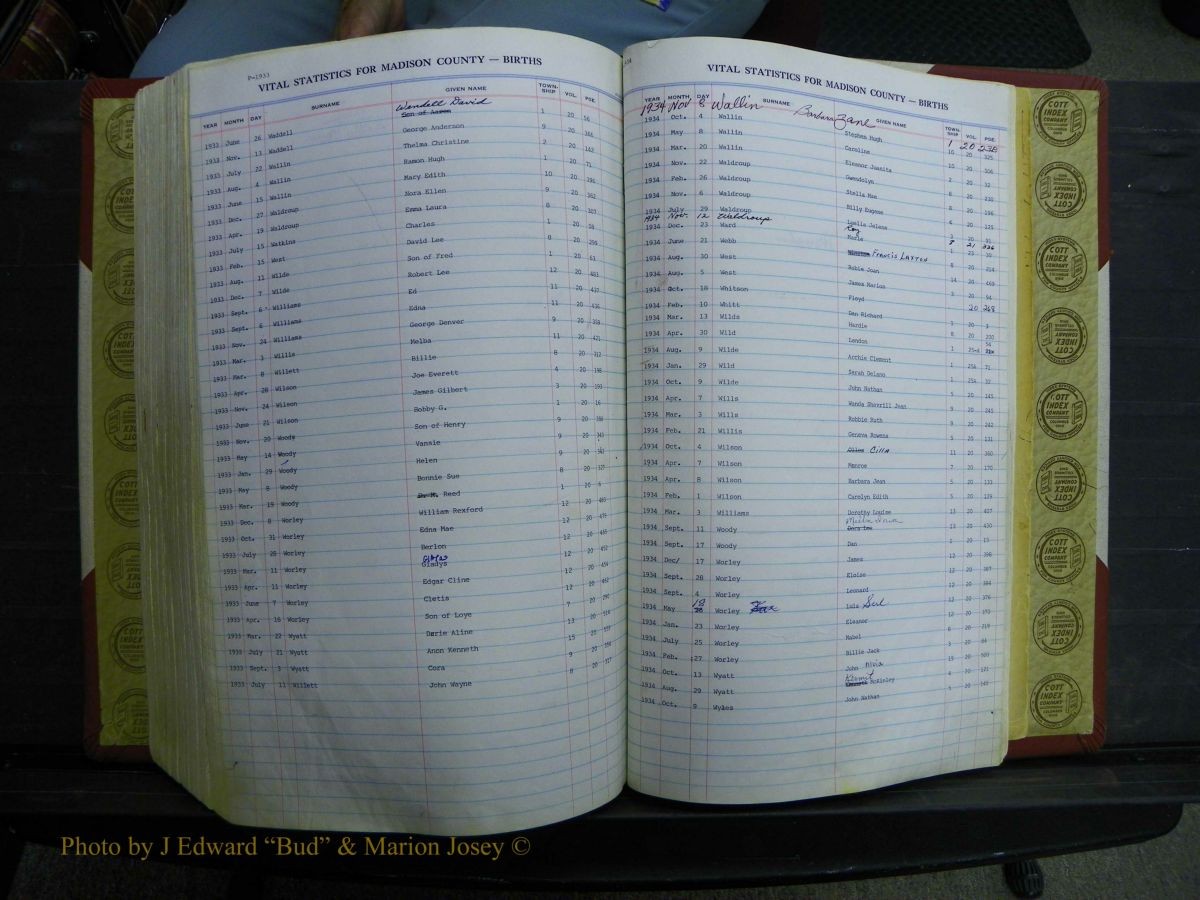 P-1933
VITAL STATISTICS FOR MADISON COUNTY — BIRTHS
YEAR MONTH DAY SURNAME GIVEN NAME TOWN-SHIP VOL. PGE.
Wendell David
1933 June 26 Waddell Son of Aaron 1 20 56
1933 Nov. 13 Waddell George Anderson 9 20 366
1933 July 22 Wallin Thelma Christine 2 20 162
1933 Aug. 4 Wallin Ramon Hugh 1 20 71
1933 June 15 Wallin Mary Edith 10 20 396
1933 Dec. 27 Waldroup Nora Ellen 9 20 362
1933 Apr. 19 Waldroup Emma Laura 8 20 307
1933 July 15 Watkins Charles 1 20 58
1933 Feb. 15 West David Lee 8 20 296
1933 Aug. 11 Wilde Son of Fred 1 20 61
1933 Dec. 7 Wilde Robert Lee 12 20 483
1933 Sept. 6 Williams Ed 11 20 437
1933 Sept. 6 Williams Edna 11 20 436
1933 Nov. 24 Williams George Denver 9 20 359
1933 Mar. 3 Willis Melba 11 20 421
1933 Mar. 8 Willett Billie 8 20 312
1933 Apr. 28 Wilson Joe Everett 4 20 198
1933 Nov. 24 Wilson James Gilbert 3 20 193
1933 June 21 Wilson Bobby G. 1 20 16
1933 Nov. 20 Woody Son of Henry 9 20
1933 May 14 Woody Vansie 9 20 343
1933 Jan. 29 Woody Helen 9 20 342
1933 May 8 Woody Bonnie Sue 8 20 327
1933 Mar. 19 Woody Dr. M. Reed 1 20 6
1933 Dec. 8 Worley William Rexford 12 20 485
1933 Oct. 31 Worley Edna Mae 12 20 479
1933 July 28 Worley Berlon 12 20
1933 Mar. 11 Worley Gladys 12 20 452
1933 Apr. 11 Worley Edgar Cline 12 20 454
1933 June 7 Worley Cletis 12 20 462
1933 Apr. 16 Worley Son of Loye 7 20 290
1933 Mar. 22 Wyatt Dorie Aline 13 20 514
1933 July 21 Wyatt Anon Kenneth 15 20
1933 Sept. 3 Wyatt Cora 9 20
1933 July 11 Willett John Wayne 8 20 327
VITAL STATISTICS FOR MADISON COUNTY — BIRTHS
YEAR MONTH DAY SURNAME GIVEN NAME TOWN-SHIP VOL. PGE.
1934 Nov 6 Wallin Barbara Zane 1 20 238
1934 Oct. 4 Wallin Stephen Hugh 10 20 325
1934 May 8 Wallin Caroline 10 20 306
1934 Mar. 20 Wallin Eleanor Juanita 2 20 32
1934 Nov. 22 Waldroup Gwendolyn 8 20 230
1934 Feb. 26 Waldroup Stella Mae 8 20 196
1934 Nov. 6 Waldroup Billy Eugene 6 20 125
1934 July 29 Waldroup Luella Jalena 3 20 91
1934 Nov 12 Waldroup Roy 8 21 336
1934 Dec. 23 Ward Marie 1 23 30
1934 June 21 Webb Winston Francis Laxton 8 20 214
1934 Aug. 30 West Robie Joan 14 20 469
1934 Aug. 5 West James Marion 3 20 94
1934 Oct. 18 Whitson Floyd 20 268
1934 Feb. 10 Whitt Dan Richard 1 20 3
1934 Mar. 13 Wilds Hardie 8 20 220
1934 Apr. 30 Wild London 1 25-A 54
1934 Aug. 9 Wilde Archie Clement 1 25A 71
1934 Jan. 29 Wild Sarah Delano 1 25A 32
1934 Oct. 9 Wilde John Nathan 5 20 145
1934 Apr. 7 Wills Wanda Shavrill Jean 9 20 245
1934 Mar. 3 Wills Robbie Ruth 9 20 242
1934 Feb. 21 Willis Geneva Rowena 5 20 131
1934 Oct. 4 Wilson Cilla 11 20 360
1934 Apr. 7 Wilson Monroe 7 20 170
1934 Apr. 8 Wilson Barbara Jean 5 20 133
1934 Feb. 1 Wilson Carolyn Edith 5 20 129
1934 Mar. 3 Williams Dorothy Louise 13 20 407
1934 Sept. 11 Woody Dora Lee 13 20 430
1934 Sept. 17 Woody Dan 1 20 15
1934 Dec/ 17 Worley James 12 20 398
1934 Sept. 28 Worley Eloise 12 20 387
1934 Sept. 4 Worley Leonard 12 20 384
1934 May 18 Worley Luis Serl 12 20 376
1934 Jan. 23 Worley Eleanor 12 20 373
1934 July 25 Worley Mabel 8 20 219
1934 Feb. 27 Worley Billie Jack 3 20 84
1934 Oct. 13 Wyatt John Alvin 15 20 500
1934 Aug. 29 Wyatt Kermit McKinley 4 20 121
1934 Oct. 9 Wyles John Nathan 5 20 145
COTT INDEX COMPANY COLUMBUS OHIO
Photo by J Edward “Bud” & Marion Josey ©